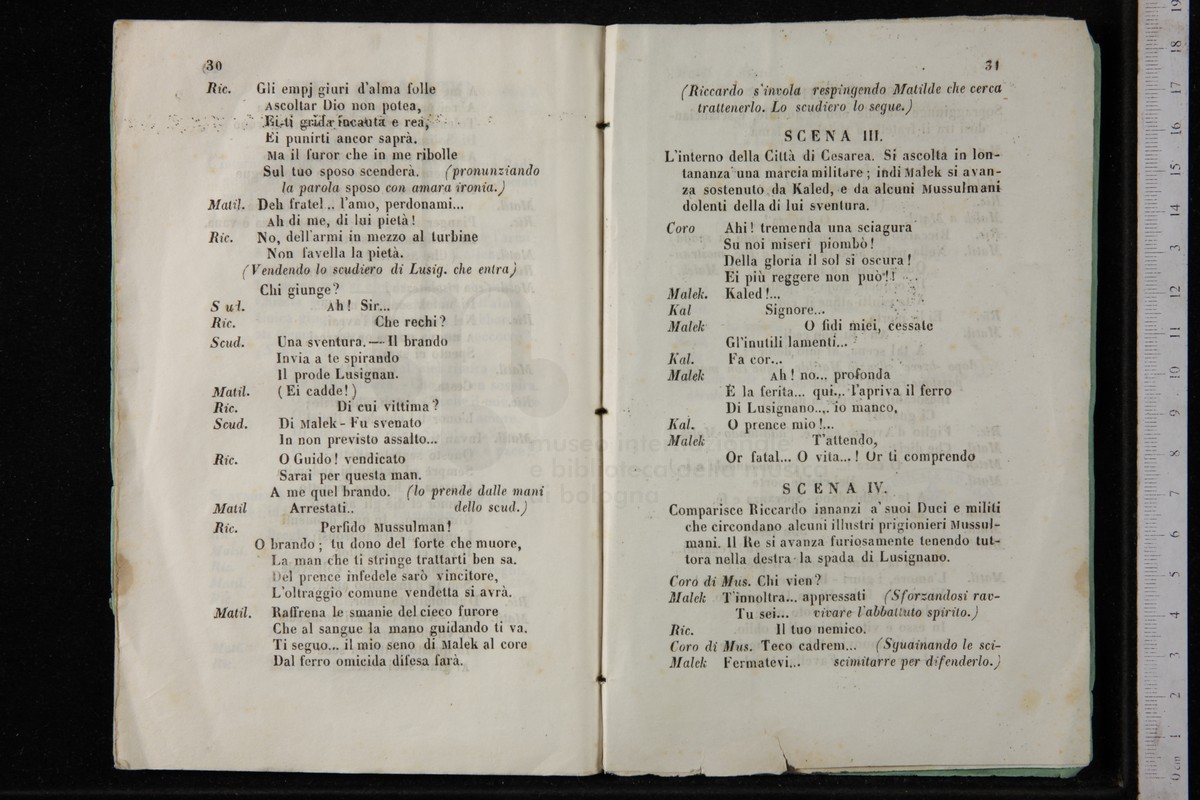 30
Ric. Gli empj giuri d'alma folle
Ascoltar Dio non potea,
Ei ti grida incauta e rea,
Ei punirti ancor saprà.
Ma il furor che in me ribolle
Sul tuo sposo scenderà. (pronunziando
la parola sposo con amara ironia.)
Matil. Deh fratel.. l'amo, perdonami...
Ah di me, di lui pietà!
Ric. No, dell'armi in mezzo al turbine
Non favella la pietà.
(Vendendo lo scudiero di Lusig. che entra)
Chi giunge?
Sul. Ah! Sir...
Ric. Che rechi?
Scud. Una sventura.— Il brando
Invia a te spirando
Il prode Lusignan.
Matil. (Ei cadde!)
Ric. Di cui vittima?
Scud. Di Malek - Fu svenato
In non previsto assalto...
Ric. O Guido! vendicato
Sarai per questa man.
A me quel brando. (lo prende dalle mani
Matil Arrestati.. dello scud.)
Ric. Perfido Mussulman!
O brando; tu dono del forte che muore,
La man che ti stringe trattarti ben sa.
Del prence infedele sarò vincitore,
L'oltraggio comune vendetta si avrà.
Matil. Raffrena le smanie del cieco furore
Che al sangue la mano guidando ti va.
Ti seguo... il mio seno di Malek al core
Dal ferro omicida difesa farà.
31
(Riccardo s'invola respingendo Matilde che cerca
trattenerlo. Lo scudiero lo segue.)
SCENA III.
L'interno della Città di Cesarea. Si ascolta in lon-
tananza una marcia militare; indi Malek si avan-
za sostenuto da Kaled, e da alcuni Mussulmani
dolenti della di lui sventura.
Coro Ahi! tremenda una sciagura
Su noi miseri piombò!
Della gloria il sol si oscura!
Ei più reggere non può!!
Malek. Kaled!...
Kal Signore...
Malek O fidi miei, cessate
Gl'inutili lamenti...
Kal. Fa cor...
Malek Ah! no... profonda
È la ferita... qui... l'apriva il ferro
Di Lusignano.... io manco,
Kal. O prence mio!...
Malek T'attendo,
Or fatal... O vita...! Or ti comprendo
SCENA IV.
Comparisce Riccardo innanzi a' suoi Duci e militi
che circondano alcuni illustri prigionieri Mussul-
mani. Il Re si avanza furiosamente tenendo tut-
tora nella destra la spada di Lusignano.
Coro di Mus. Chi vien?
Malek T'innoltra... appressati (Sforzandosi rav-
Tu sei... vivare l'abbattuto spirito.)
Ric. Il tuo nemico.
Coro di Mus. Teco cadrem... (Sguainando le sci-
Malek Fermatevi... scimitarre per difenderlo.)
museo internazionale
e biblioteca della musica
di bologna